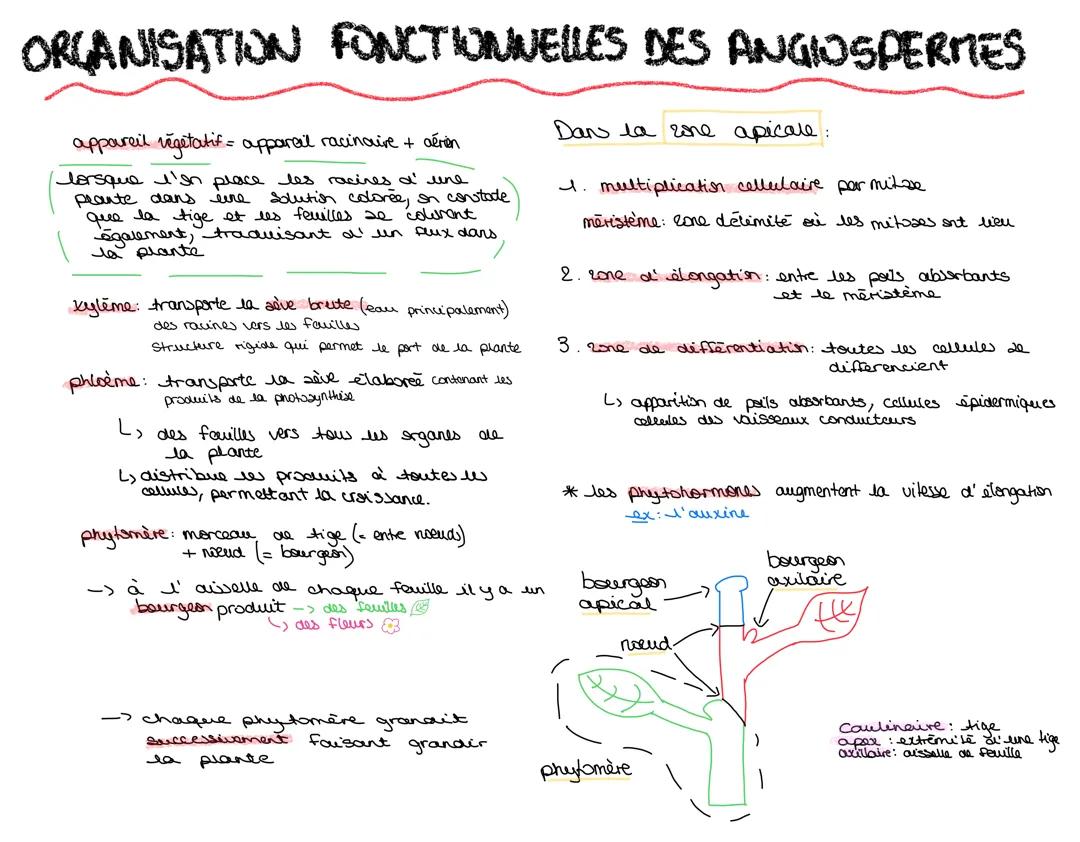 ORGANISATION FONCTIONNELLES DES ANGIOSPERMES
appareil végétatif = appareil racinaire + aérien
lorsque l'on place les racines d'une
plante dans une solution colorée, on constate
que la tige et les feuilles se colorent
également, traduisant d'un flux dans
la plante
xylème: transporte la sève brute (eau principalement)
des racines vers les feuilles
structure rigide qui permet le port de la plante
phloème: transporte la sève élaboreé contenant les
produits de la photosynthèse
↳ des feuilles vers tous les organes de
la plante
↳ distribue les produits à toutes les
cellules, permettant la croissance.
phytomère: morceau de tige (= entre nœuds)
+ nœud (= bourgeon)
-> à l'aisselle de chaque feuille il y a un
bourgeon produit -> des feuilles
↳ des fleurs
-> chaque phytomère grandit
successivement faisant grandir
la plante
Dans la zone apicale:
1. multiplication cellulaire par mitose
méristème: zone délimité où les mitoses ont lieu
2. zone d'élongation: entre les poils absorbants
et le méristème
3. zone de différentiation: toutes les cellules se
differencient
↳ apparition de poils absorbants, cellules épidermiques
cellules des vaisseaux conducteurs
* les phytohormones augmentent la vitesse d'élongation
ex: l'auxine
bourgeon
apical
bourgeon
axilaire
nœud
phytomère
Caulinaire: tige
apex: extrémité d'une tige
axillaire: aisselle de feuille